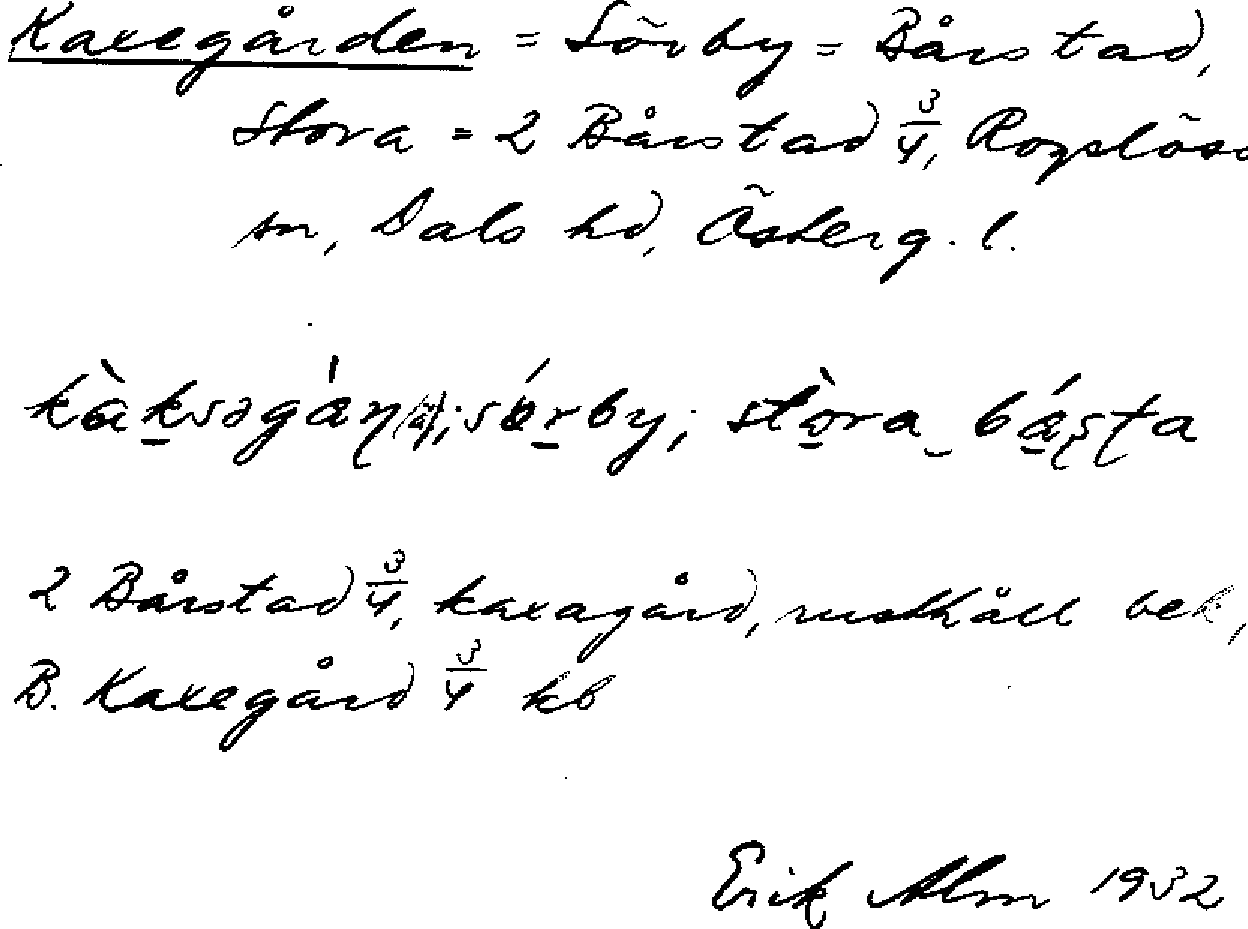 Kaxegården = Sörby = Bårstad,
Stora = 2 Bårstad 3/4, Rogslösa
sn, Dals hd, Österg. l.
kàksəgán; sǿrby; stòra básta
2 Bårstad 3/4, kaxagård, rusthåll bek,
B. Kaxegård 3/4 kb
Erik Alm 1932